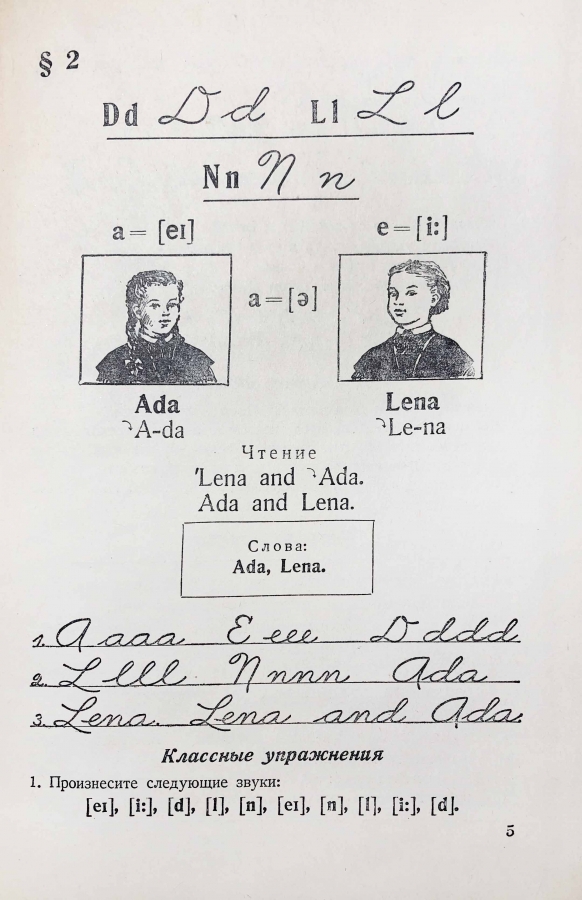 § 2
Dd D d Ll L l
Nn N n
a = [eɪ] e = [i:]
a = [ə]
Ada Lena
↷A-da ↷Le-na
Чтение
'Lena and ↷Ada.
Ada and Lena.
Слова:
Ada, Lena.
1. A a a a E e e e D d d d
2. L l l l N n n n Ada
3. Lena. Lena and Ada.
Классные упражнения
1. Произнесите следующие звуки:
[eɪ], [i:], [d], [l], [n], [eɪ], [n], [l], [i:], [d].
5